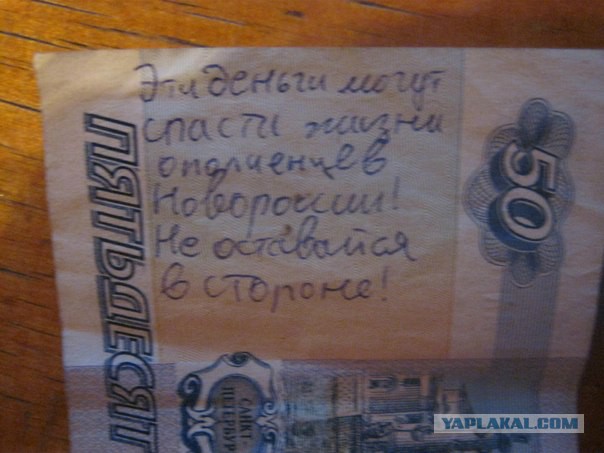 Эти деньги могут
спасти жизни
ополченцев
Новороссии!
Не оставайся
в стороне!
50
ПЯТЬДЕСЯТ
САНКТ-
ПЕТЕРБУРГ
YAPLAKAL.COM